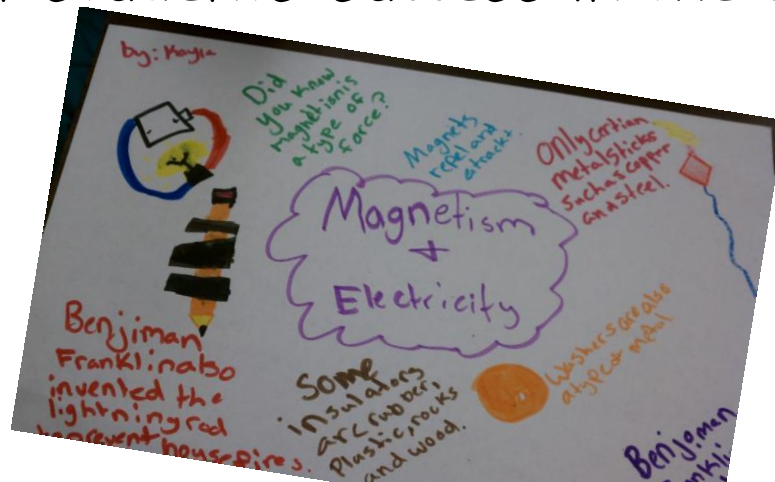 by: Kayla
Did
you know
magnetism is
a type of
force?
Magnets
repel and
atrackt.
Only certian
metal sticks
such as copper
and steel.
Magnetism
+
Electricity
Benjiman
Franklin also
invented the
lightning rod
to prevent house fires.
Some
insulators
are rubber,
Plastic, rocks
and wood.
Washers are also
a type of metal
Benjaman